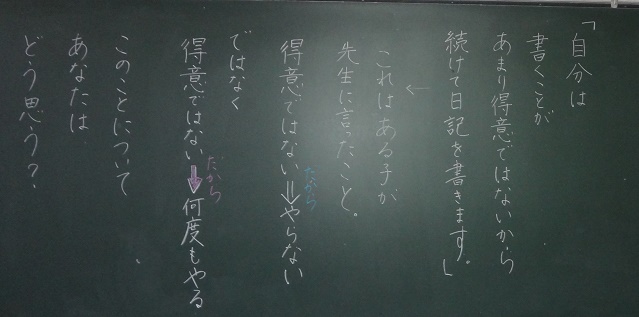 「自分は
書くことが
あまり得意ではないから
続けて日記を書きます。」
←
これはある子が
先生に言ったこと。
得意ではない⇒やらない
だから
ではなく
得意ではない➡何度もやる
だから
このことについて
あなたは
どう思う?